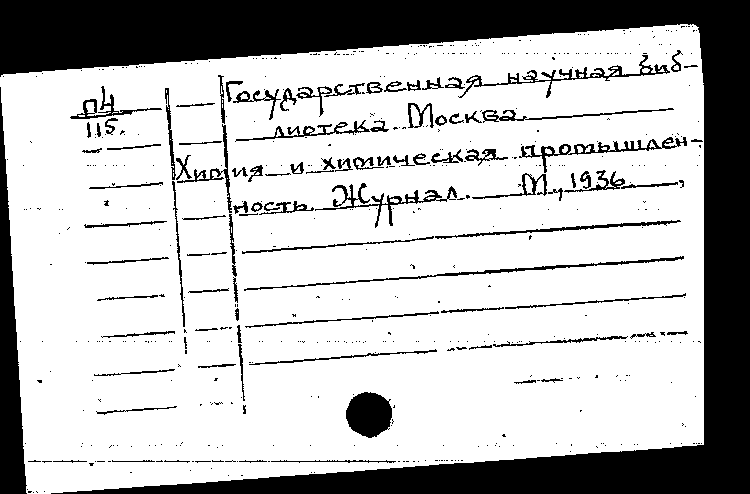 П4
115.
Государственная научная биб-
лиотека Москва.
Химия и химическая промышлен-
ность. Журнал. М., 1936.